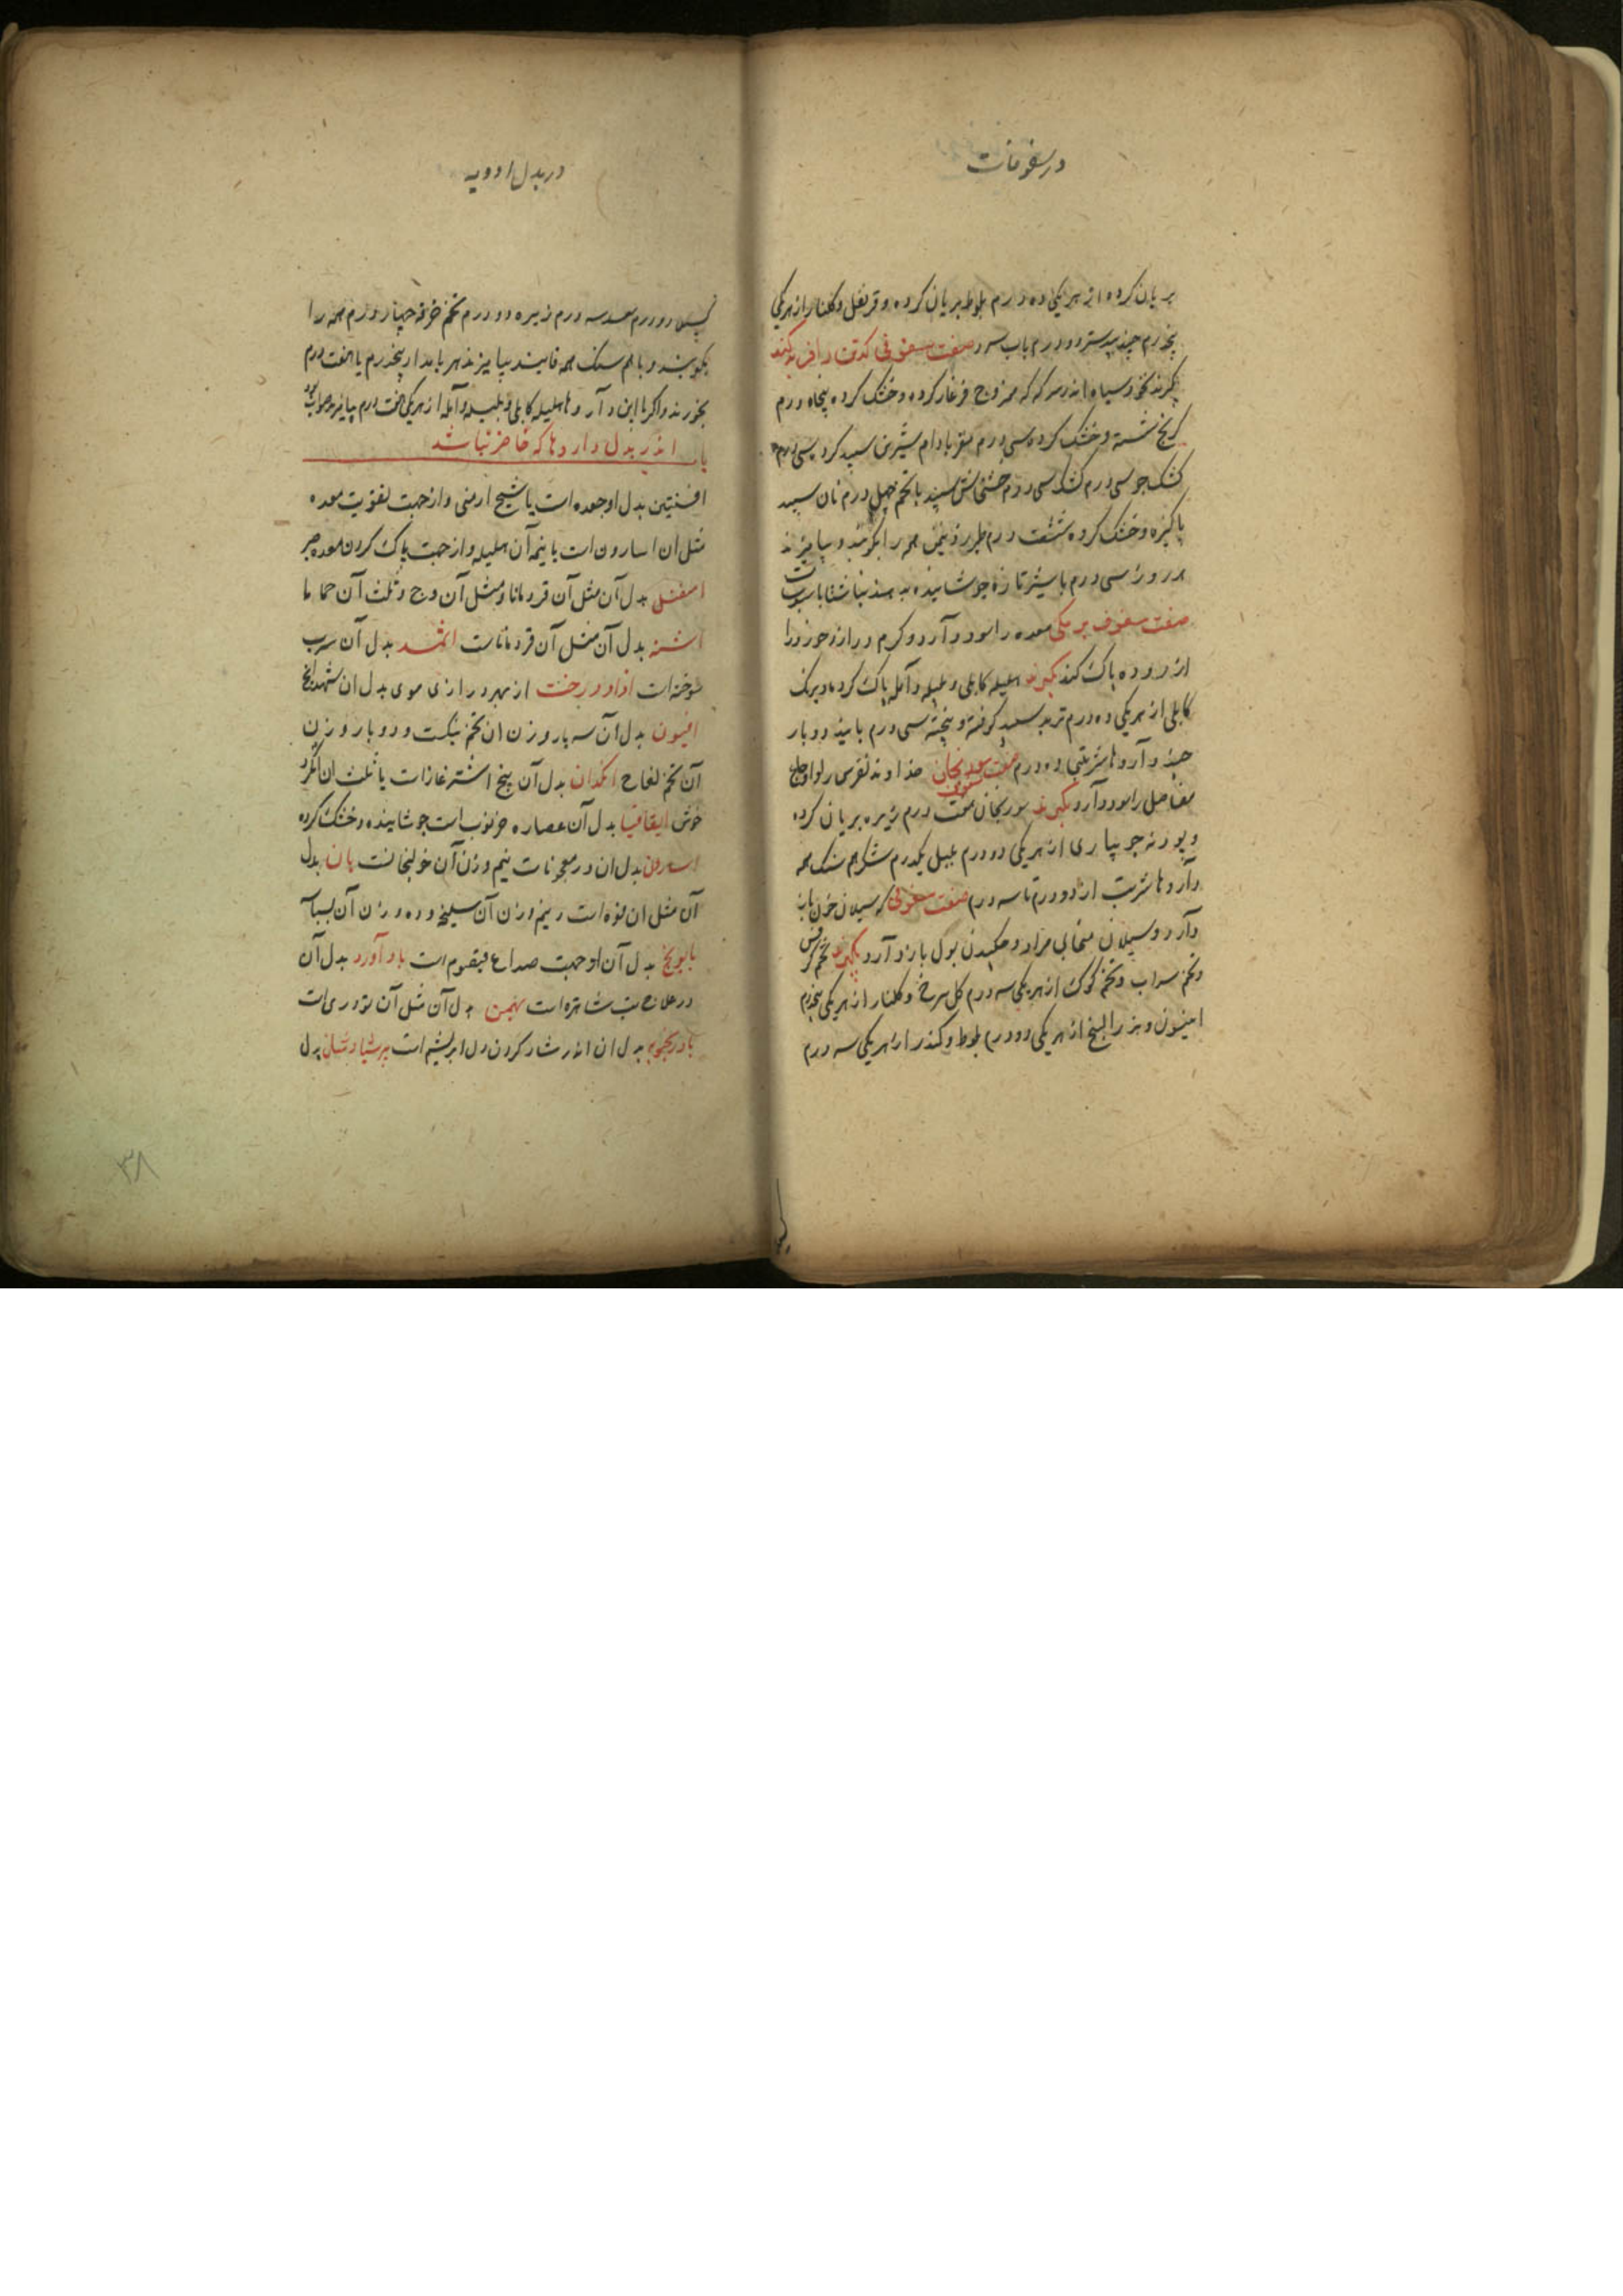 در سفوفات
بریان کرده از هر یکی ده درم بلوط بریان کرده و قرنفل و کلنار از هر یکی
پنجدرم جندبیدستر دو درم باب سرد صفت سفوفی که تن را فربه کند
بگیرند نخود سیاه اندر سرکه ممزوج فرغار کرده و خشک کرده پنجاه درم
کرنج شسته و خشک کرده سی درم مغز بادام شیرین سپید کرده سی درم
کشک جو سی درم کشک سی درم خشخاش سپید با تخم چهل درم نان سپید
پاکیزه و خشک کرده شصت درم همه را بکوبند و بیامیزند
هر روز سی درم با شیر تازه جوشانیده بدهند ناشتا
صفت سفوف برمکی معده را سود دارد و کرم دراز و خورد را
از روده پاک کند بگیرند هلیله کابلی و بلیله و آمله پاک کرده و برنک
کابلی از هر یکی ده درم تربد سپید کوفته و بیخته سی درم پانید دو بار
چند داروها شربتی ده درم صفت سفوف سورنجان خداوند نقرس را و اوجاع
مفاصل را سود دارد بگیرند سورنجان هفت درم زیره بریان کرده
و پودنه جویباری از هر یکی دو درم یکدرم شکر هم سنک همه
داروها شربت از دو درم تا سه درم صفت سفوفی که سیلان خون باز
دارد و سیلان منی و چکیدن بول باز دارد بگیرند تخم کرفس
و تخم سداب و تخم کوک از هر یکی سه درم کل سرخ و کلنار از هر یکی پنجدرم
افیون و بزرالبنج از هر یکی دو درم بلوط و کندر از هر یکی سه درم
در بدل ادویه
دو درم سعد سه درم زیره دو درم تخم خرفه چهار درم همه را
بکوبند و با هم سنک همه فانید بیامیزند هر بامداد پنجدرم یا هفت درم
بخورند و اکر با این داروها هلیله کابلی و بلیله و آمله از هر یکی هفت درم بیامیزند صواب بود
باب اندر بدل داروها که حاضر نباشد
افسنتین بدل او جعده است یا شیح ارمنی و از جهت تقویت معده
مثل ان اسارون است با نیمه آن هلیله و از جهت پاک کردن معده صبر
اسقیل بدل آن مثل آن قردمانا و مثل آن وج و ثلث آن حماما
اشنه بدل آن مثل آن قردماناست اثمد بدل آن سرب
سوخته است ازاددرخت از بهر درازی موی بدل ان شهدانج
افیون بدل آن سه بار وزن ان تخم بنکست و دو بار وزن
آن تخم لفاح انکدان بدل آن بیخ اشترغاز است یا ثلث ان انکزد
خوش اقاقیا بدل آن عصاره خرنوب است جوشانیده و خشک کرده
اسارون بدل ان در معجونات نیم وزن آن خولنجانست بان بدل
آن مثل ان فوه است و نیم وزن آن سلیخه و ده وزن آن بسباسه
بابونج بدل آن از جهت صداع قیصوم است بادآورد بدل آن
در علاج تب شاهتره است بهمن بدل آن مثل آن تودری است
بادرنجبویه بدل ان اندر شاد کردن دل ابریشم است پرسیاوشان بدل
۳۸